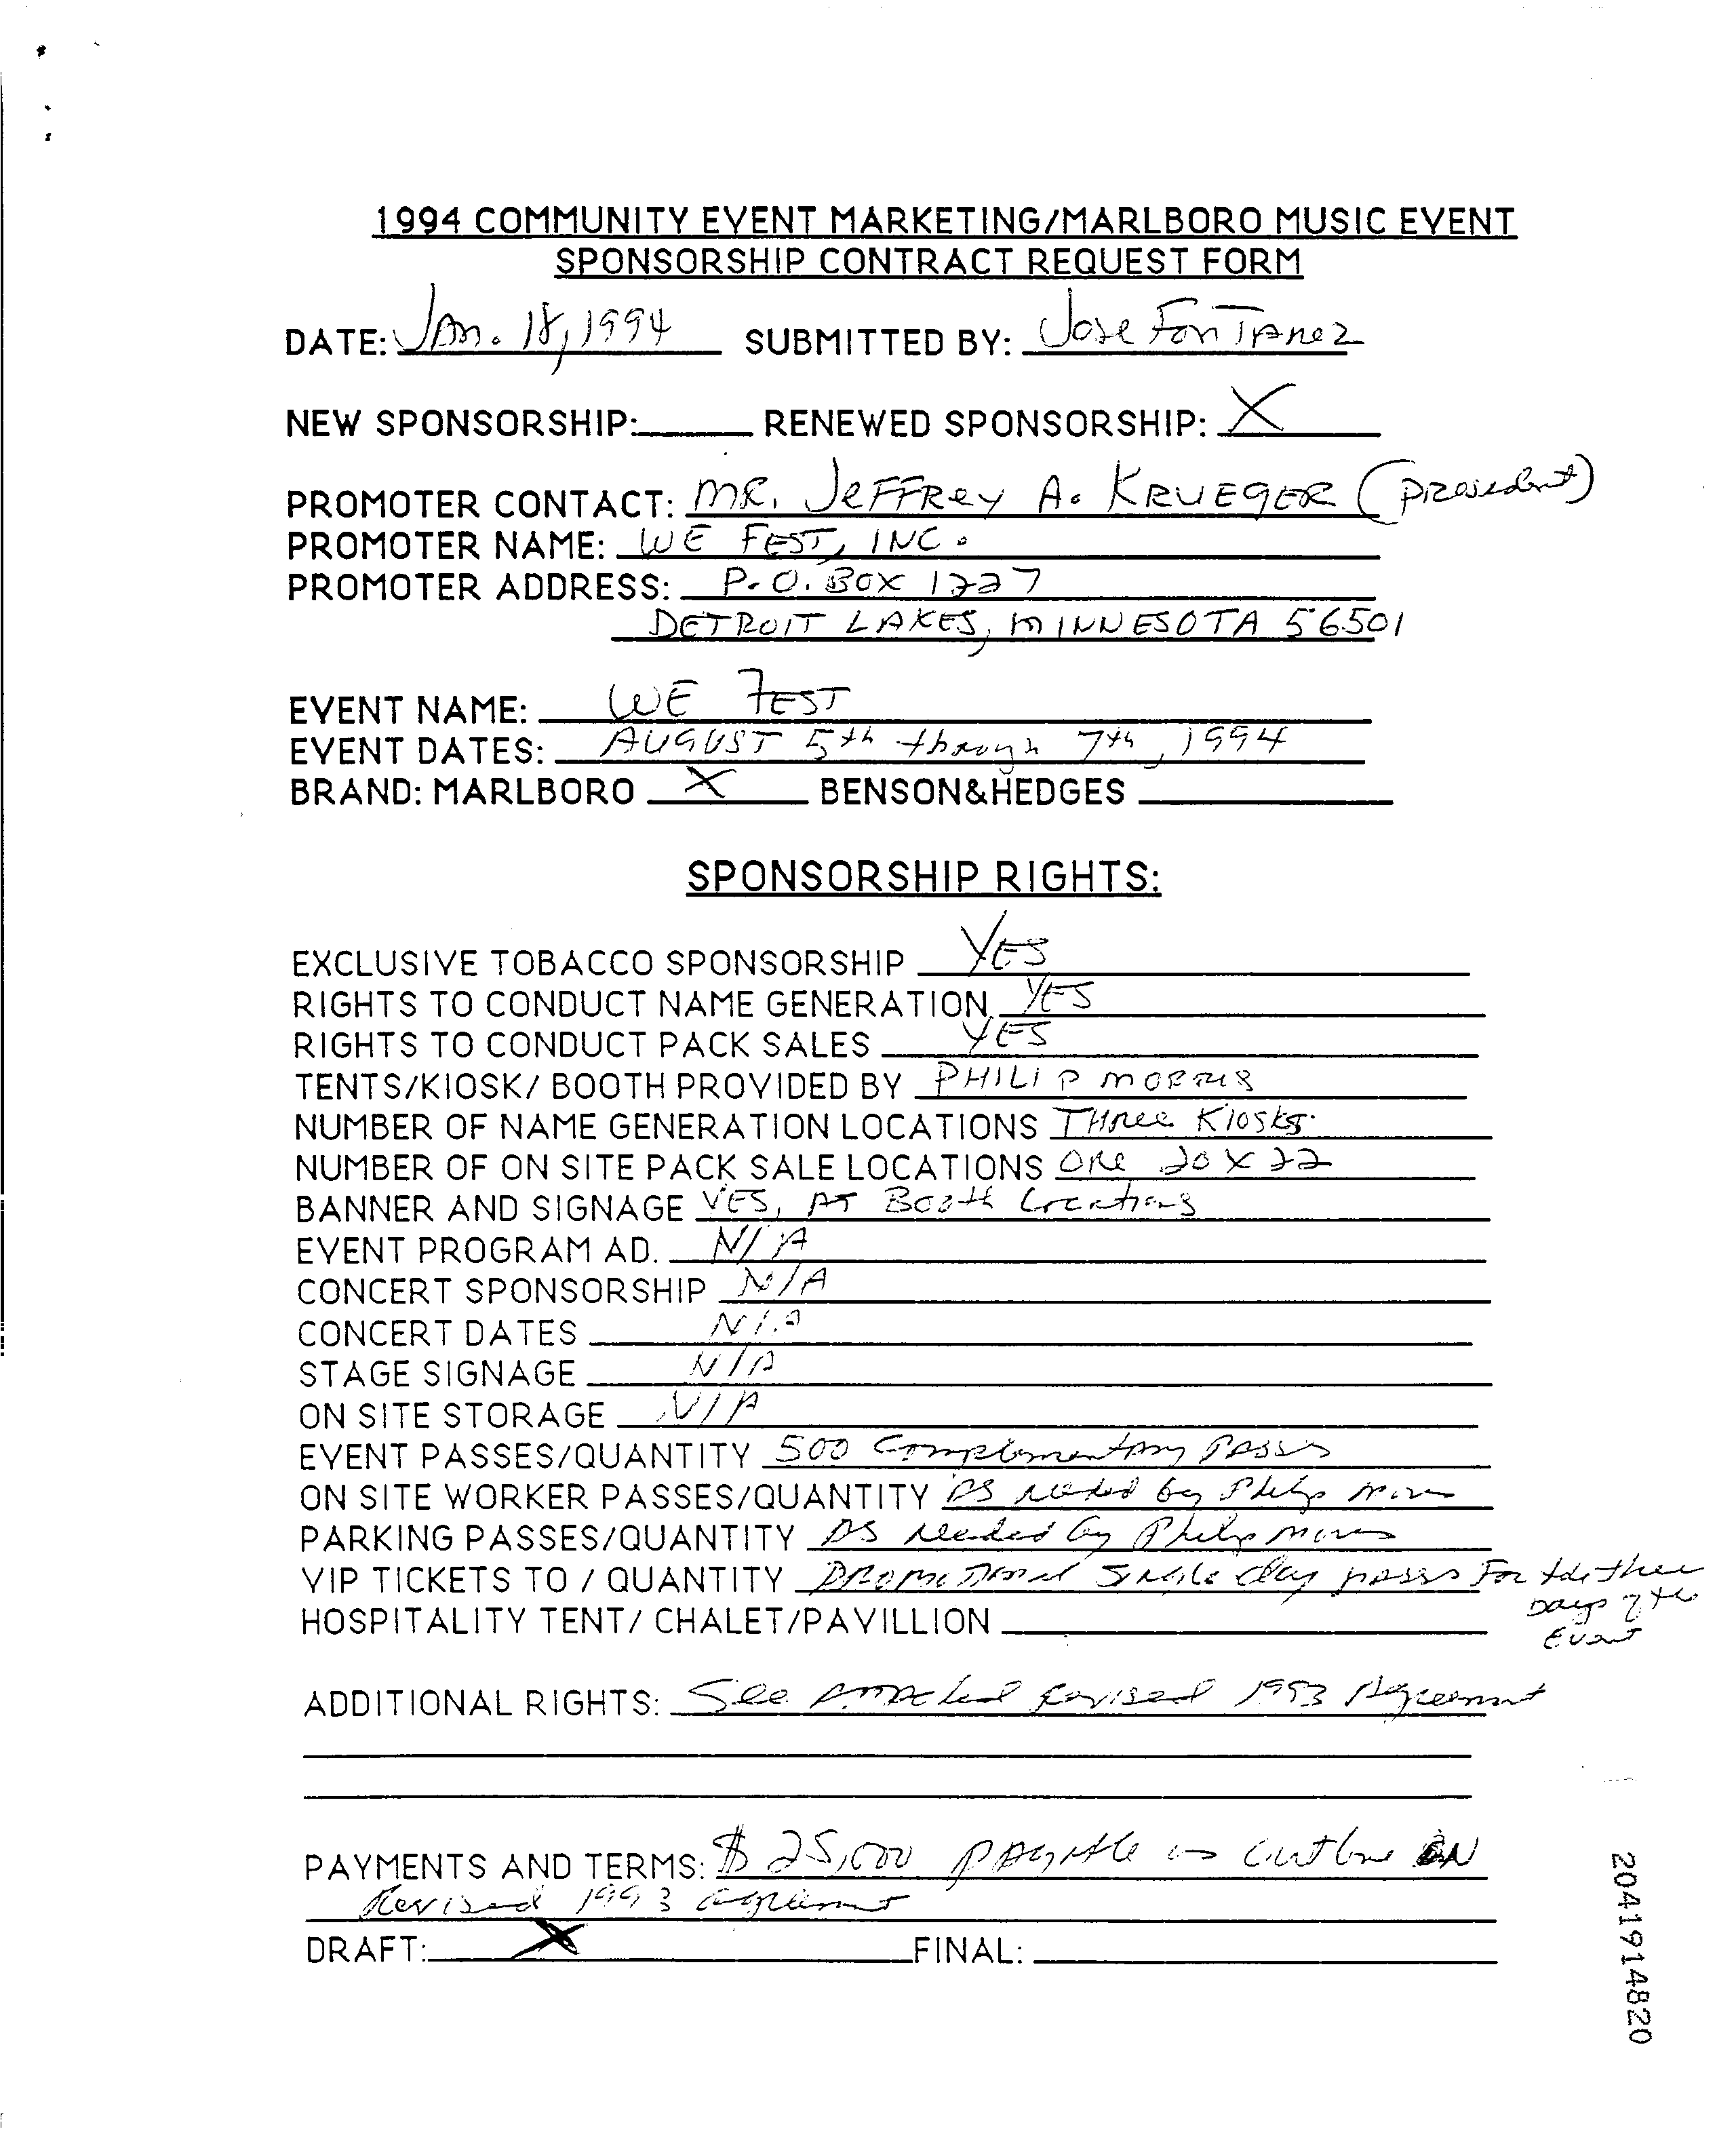 1994 COMMUNITY EVENT MARKETING/MARLBORO MUSIC EVENT
SPONSORSHIP CONTRACT REQUEST FORM
DATE: Jan. 18, 1994 SUBMITTED BY: Jose Fontanez
NEW SPONSORSHIP: RENEWED SPONSORSHIP: X
PROMOTER CONTACT: MR. JEFFREY A. KRUEGER (President)
PROMOTER NAME: WE FEST, INC.
PROMOTER ADDRESS: P.O. BOX 1227
DETROIT LAKES, MINNESOTA 56501
EVENT NAME: WE FEST
EVENT DATES: AUGUST 5th through 7th, 1994
BRAND: MARLBORO X BENSON&HEDGES
SPONSORSHIP RIGHTS:
EXCLUSIVE TOBACCO SPONSORSHIP YES
RIGHTS TO CONDUCT NAME GENERATION YES
RIGHTS TO CONDUCT PACK SALES YES
TENTS/KIOSK/ BOOTH PROVIDED BY PHILIP MORRIS
NUMBER OF NAME GENERATION LOCATIONS THree Kiosks
NUMBER OF ON SITE PACK SALE LOCATIONS ONe 20 X 22
BANNER AND SIGNAGE YES, AT Booth Locations
EVENT PROGRAM AD. N/A
CONCERT SPONSORSHIP N/A
CONCERT DATES N/A
STAGE SIGNAGE N/A
ON SITE STORAGE N/A
EVENT PASSES/QUANTITY 500 Complementary Passes
ON SITE WORKER PASSES/QUANTITY AS needed by Philip Morris
PARKING PASSES/QUANTITY AS needed by Philip Morris
VIP TICKETS TO / QUANTITY Promotional Single day passes For the three
Days of the
Event
HOSPITALITY TENT/ CHALET/PAVILLION
ADDITIONAL RIGHTS: See Attached Revised 1993 Agreement
PAYMENTS AND TERMS: $ 25,000 payable as outline ON
Revised 1993 agreement
DRAFT: X FINAL:
2041914820